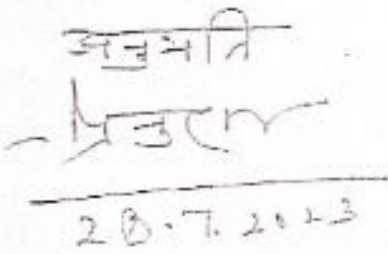 अनुमति
28.7.2023